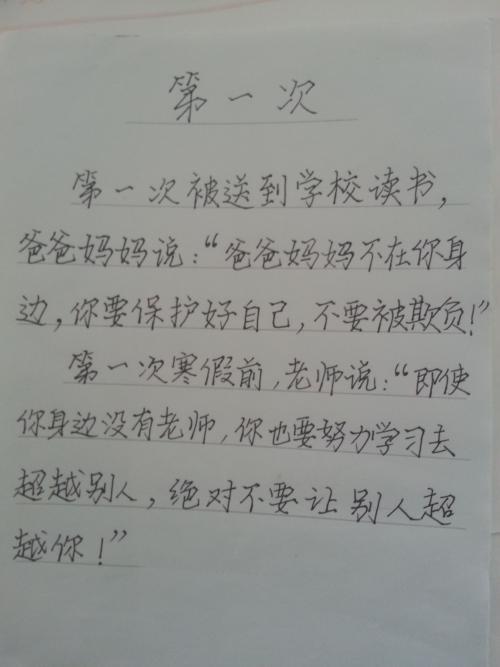 第一次
第一次被送到学校读书，
爸爸妈妈说：“爸爸妈妈不在你身
边，你要保护好自己，不要被欺负！”
第一次寒假前，老师说：“即使
你身边没有老师，你也要努力学习去
超越别人，绝对不要让别人超
越你！”